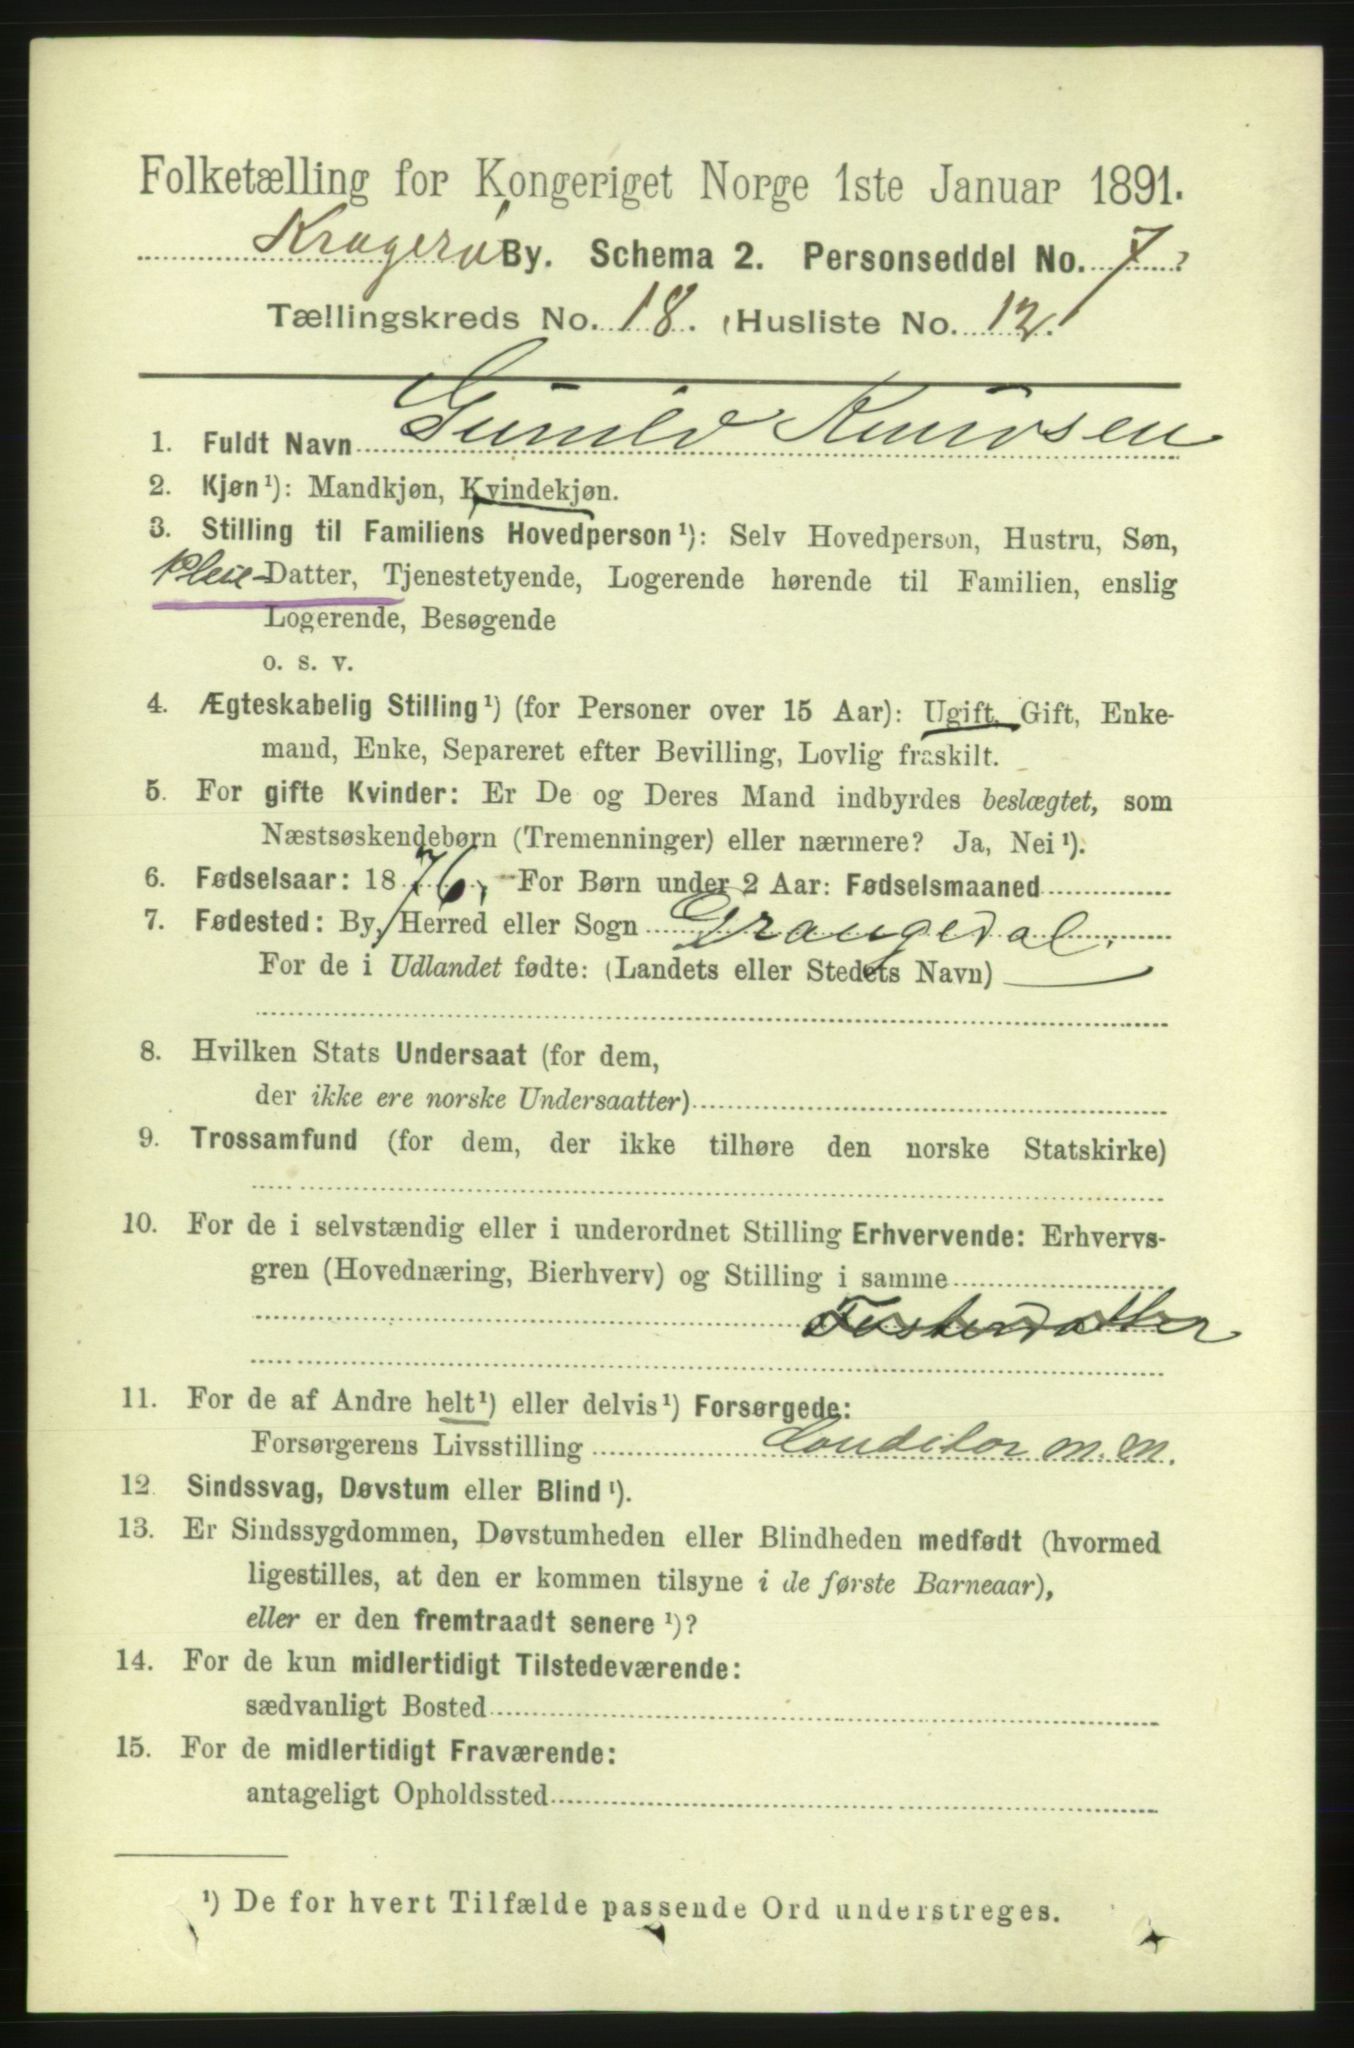 Folketælling for Kongeriget Norge 1ste Januar 1891.
Kragerø By. Schema 2. Personseddel No. 7
Tællingskreds No. 18. Husliste No. 12.
1. Fuldt Navn Gunild Knudsen
2. Kjøn¹): Mandkjøn, Kvindekjøn.
3. Stilling til Familiens Hovedperson¹): Selv Hovedperson, Hustru, Søn,
Pleie-Datter, Tjenestetyende, Logerende hørende til Familien, enslig
Logerende, Besøgende
o. s. v.
4. Ægteskabelig Stilling¹) (for Personer over 15 Aar): Ugift, Gift, Enke-
mand, Enke, Separeret efter Bevilling, Lovlig fraskilt.
5. For gifte Kvinder: Er De og Deres Mand indbyrdes beslægtet, som
Næstsøskendebørn (Tremenninger) eller nærmere? Ja, Nei¹).
6. Fødselsaar: 1876, For Børn under 2 Aar: Fødselsmaaned
7. Fødested: By, Herred eller Sogn Drangedal.
For de i Udlandet fødte: (Landets eller Stedets Navn)
8. Hvilken Stats Undersaat (for dem,
der ikke ere norske Undersaatter)
9. Trossamfund (for dem, der ikke tilhøre den norske Statskirke)
10. For de i selvstændig eller i underordnet Stilling Erhvervende: Erhvervs-
gren (Hovednæring, Bierhverv) og Stilling i samme
Fosterdatter
11. For de af Andre helt¹) eller delvis¹) Forsørgede:
Forsørgerens Livsstilling Conditor m. m.
12 Sindssvag, Døvstum eller Blind¹).
13. Er Sindssygdommen, Døvstumheden eller Blindheden medfødt (hvormed
ligestilles, at den er kommen tilsyne i de første Barneaar),
eller er den fremtraadt senere¹)?
14. For de kun midlertidigt Tilstedeværende:
sædvanligt Bosted
15. For de midlertidigt Fraværende:
antageligt Opholdssted
¹) De for hvert Tilfælde passende Ord understreges.